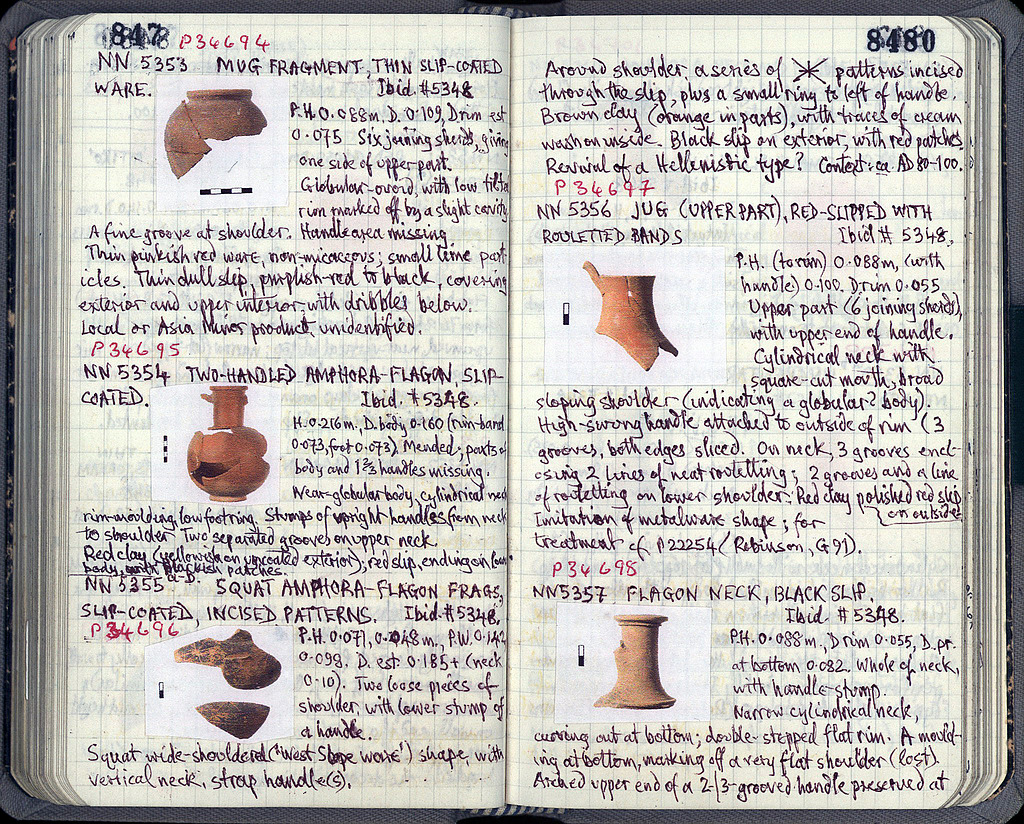 8478
P 34694
NN 5353 MUG FRAGMENT, THIN SLIP-COATED
WARE. Ibid. #5348
P.H. 0.088m, D. 0.109, D.rim est
0.075 Six joining sherds, giving
one side of upper part.
Globular-ovoid, with low tilted
rim marked off by a slight cavity
A fine groove at shoulder. Handle area missing
Thin pinkish red ware, non-micaceous; small lime part
icles. Thin dull slip, purplish-red to black, covering
exterior and upper interior, with dribbles below.
Local or Asia Minor product, unidentified.
P 34695
NN 5354 TWO-HANDLED AMPHORA-FLAGON, SLIP-
COATED. Ibid. #5348.
H. 0.216m., D. body 0.160 (rim-band
0.073, foot 0.073). Mended; parts of
body and 1 2/3 handles missing.
Near-globular body, cylindrical neck
rim-moulding, low footring. Stumps of upright handles from neck
to shoulder. Two separated grooves on upper neck.
Red clay (yellowish on uncoated exterior), red slip, ending on lower
body, with blackish patches.
NN 5355 a-b. SQUAT AMPHORA-FLAGON FRAGS,
SLIP-COATED, INCISED PATTERNS. Ibid. #5348,
P 34696
P.H. 0.071, 0.048m., P.W. 0.142
0.093. D. est 0.185+ (neck
0.10). Two loose pieces of
shoulder, with lower stump of
a handle.
Squat wide-shouldered ('West Slope ware') shape, with
vertical neck, strap handle(s).
8480
Around shoulder, a series of patterns incised
through the slip, plus a small ring to left of handle.
Brown clay (orange in parts), with traces of cream
wash on inside. Black slip on exterior, with red patches.
Revival of a Hellenistic type? Context: ca. AD 80-100.
P 34697
NN 5356 JUG (UPPER PART), RED-SLIPPED WITH
ROULETTED BANDS Ibid # 5348,
P.H. (to rim) 0.088m, (with
handle) 0.100. D.rim 0.055
Upper part (6 joining sherds),
with upper end of handle.
Cylindrical neck with
square-cut mouth, broad
sloping shoulder (indicating a globular? body).
High-swung handle attached to outside of rim (3
grooves, both edges sliced. On neck, 3 grooves encl-
osing 2 lines of neat rouletting; 2 grooves and a line
of rouletting on lower shoulder. Red clay polished red slip
on outside
Imitation of metalware shape; for
treatment cf. P22254 (Robinson, G 91).
P 34698
NN 5357 FLAGON NECK, BLACK SLIP.
Ibid. # 5348.
P.H. 0.088m, D rim 0.055, D. pr.
at bottom 0.082. Whole of neck,
with handle-stump.
Narrow cylindrical neck,
curving out at bottom; double-stepped flat rim. A mould-
ing at bottom, marking off a very flat shoulder (lost).
Arched upper end of a 2-/3-grooved handle preserved at